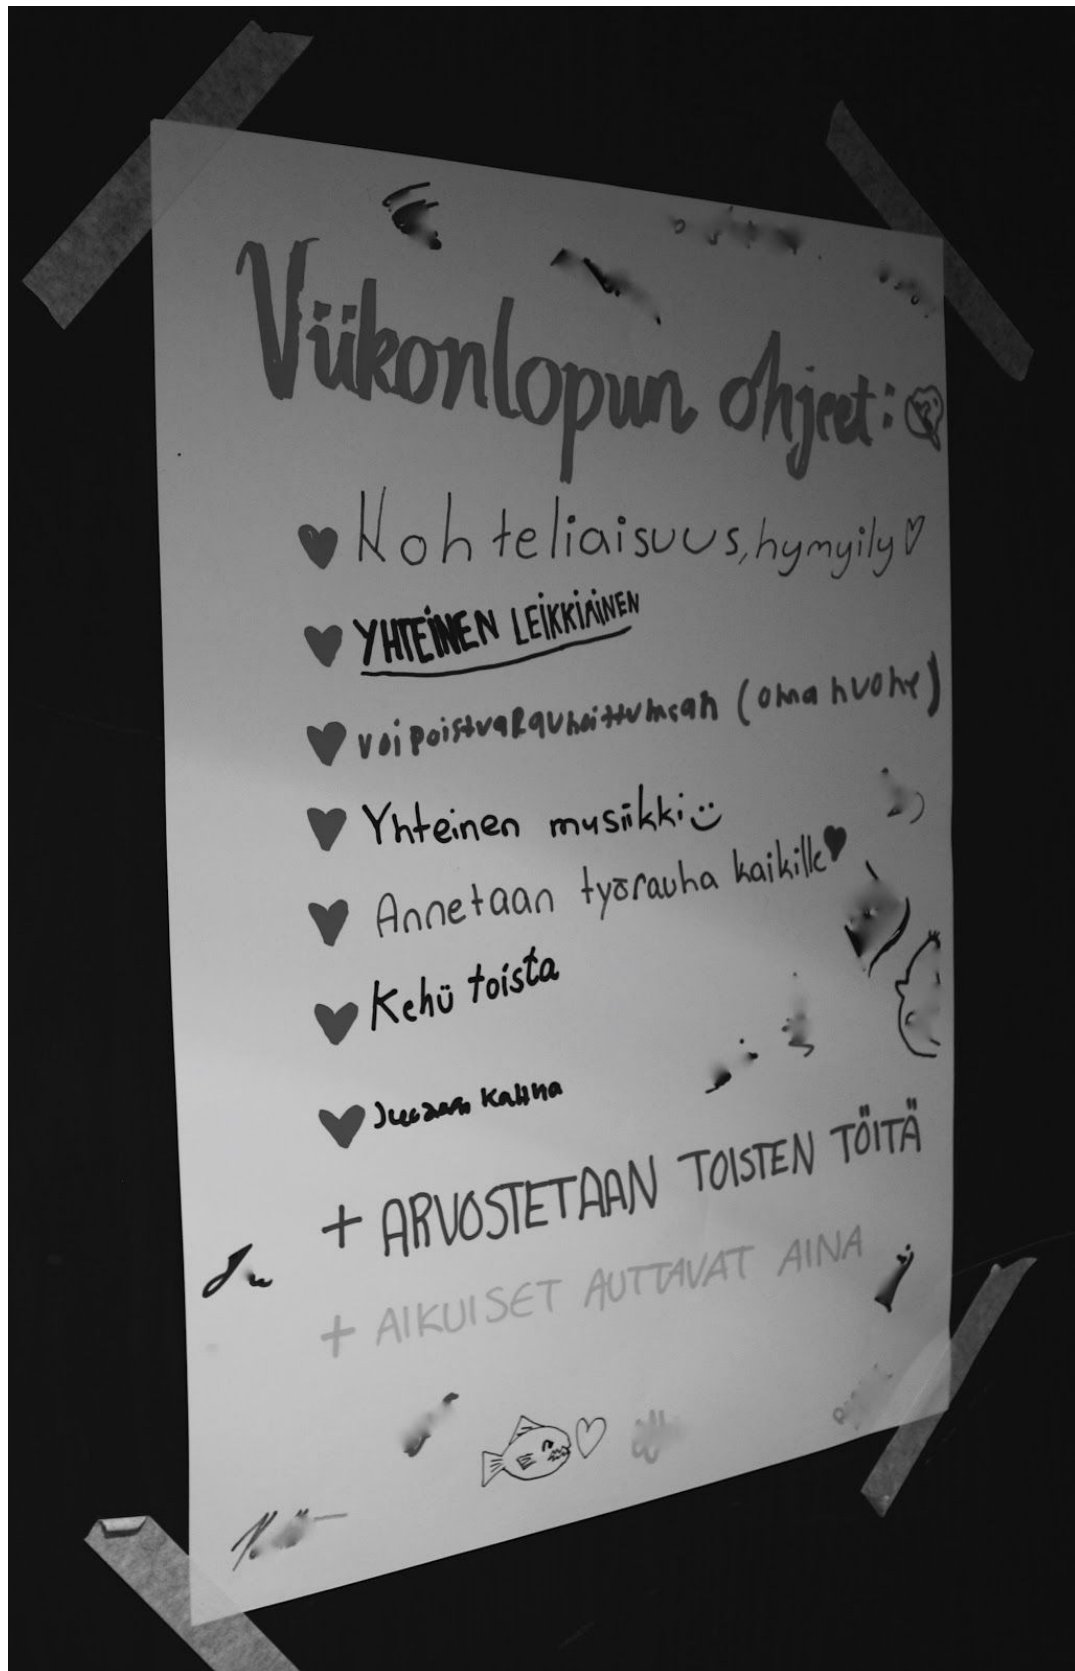 Viikonlopun ohjeet:
Kohteliaisuus, hymyily
YHTEINEN LEIKKIMINEN
voi poistua Rauhoittumaan (oma huone)
Yhteinen musiikki
Annetaan työrauha kaikille
Kehu toista
+ ARVOSTETAAN TOISTEN TÖITÄ
+ AIKUISET AUTTAVAT AINA